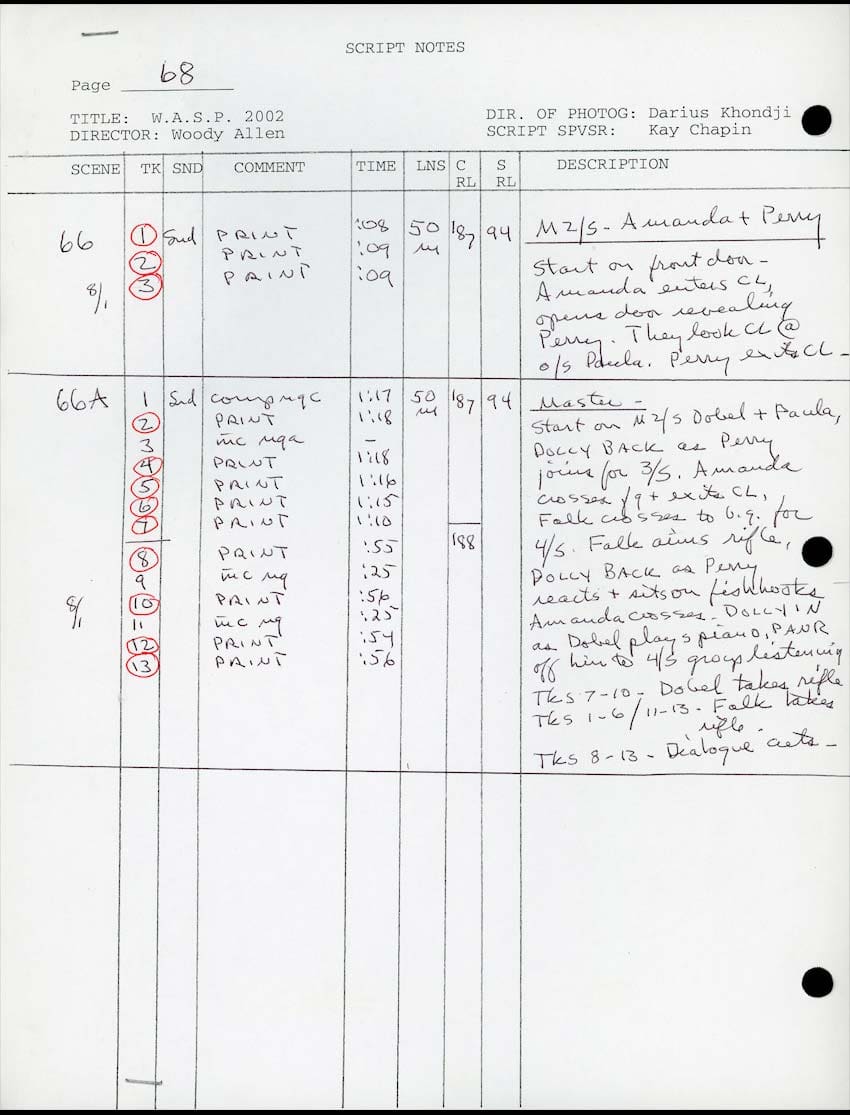 SCRIPT NOTES
Page 68
TITLE: W.A.S.P. 2002 DIR. OF PHOTOG: Darius Khondji
DIRECTOR: Woody Allen SCRIPT SPVSR: Kay Chapin
SCENE TK SND COMMENT TIME LNS C RL S RL DESCRIPTION
66 1 Snd PRINT :08 50 m 187 94 M2/S - Amanda + Perry
2 PRINT :09
8/1 3 PRINT :09
Start on front door -
Amanda enters CL,
opens door revealing
Perry. They look CL @
o/s Paula. Perry exits CL -
66A 1 Snd comp ngc 1:17 50 m 187 94 Master -
2 PRINT 1:18
3 mc nga -
4 PRINT 1:18
5 PRINT 1:16
6 PRINT 1:15
7 PRINT 1:10
8 PRINT :55 188
9 mc ng :25
8/1 10 PRINT :56
11 mc ng :25
12 PRINT :54
13 PRINT :56
Start on M2/S Dobel + Paula,
DOLLY BACK as Perry
joins for 3/S. Amanda
crosses f/g + exits CL,
Falk crosses to b.g. for
4/S. Falk aims rifle,
DOLLY BACK as Perry
reacts + sits on fishhooks
Amanda crosses - DOLLY IN
as Dobel plays piano, PAN R
off him to 4/S group listening
TKs 7-10 - Dobel takes rifle
TKs 1-6/11-13 - Falk takes
rifle -
TKs 8-13 - Dialogue cuts -